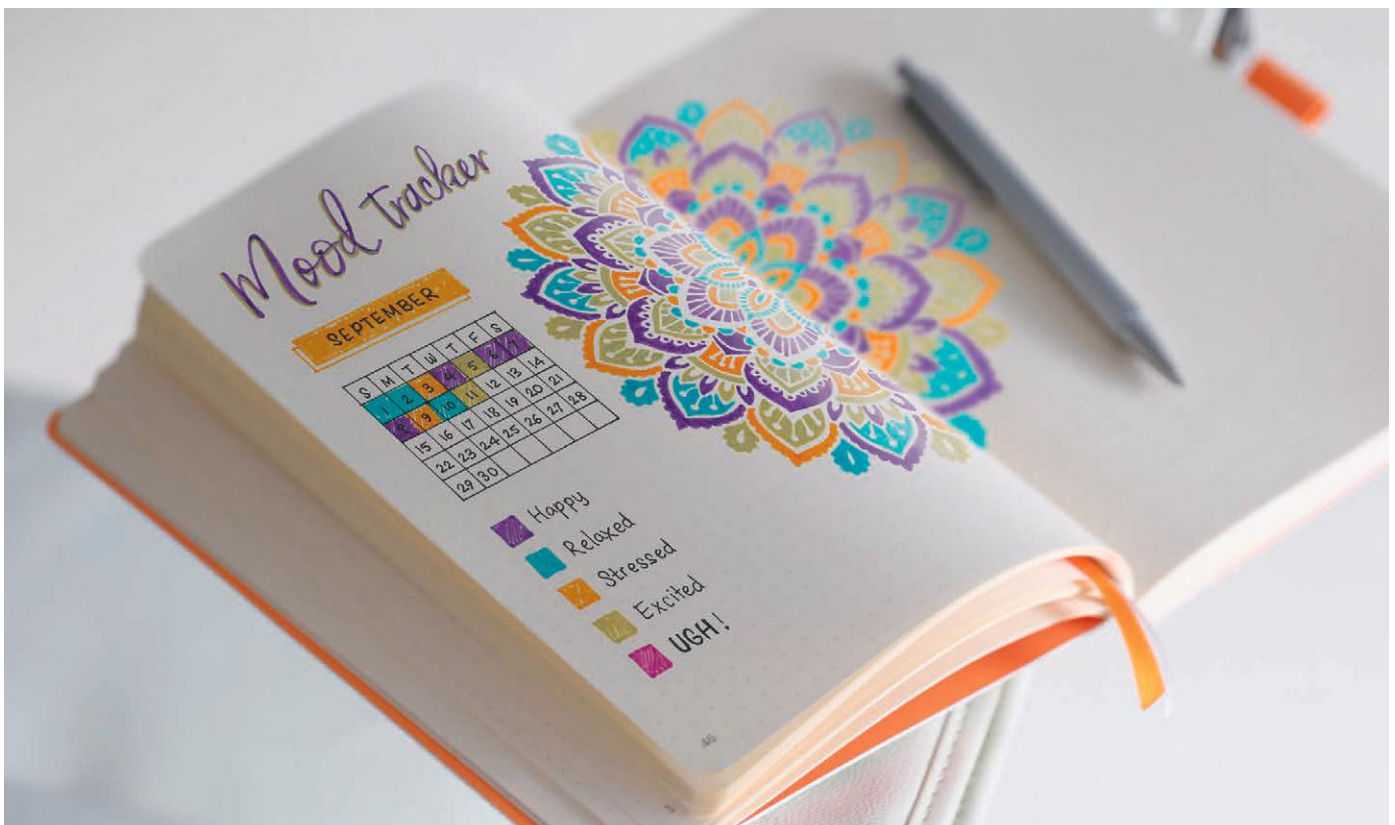 Mood tracker
SEPTEMBER
S M T W T F S
1 2 3 4 5 6 7
8 9 10 11 12 13 14
15 16 17 18 19 20 21
22 23 24 25 26 27 28
29 30
Happy
Relaxed
Stressed
Excited
UGH!